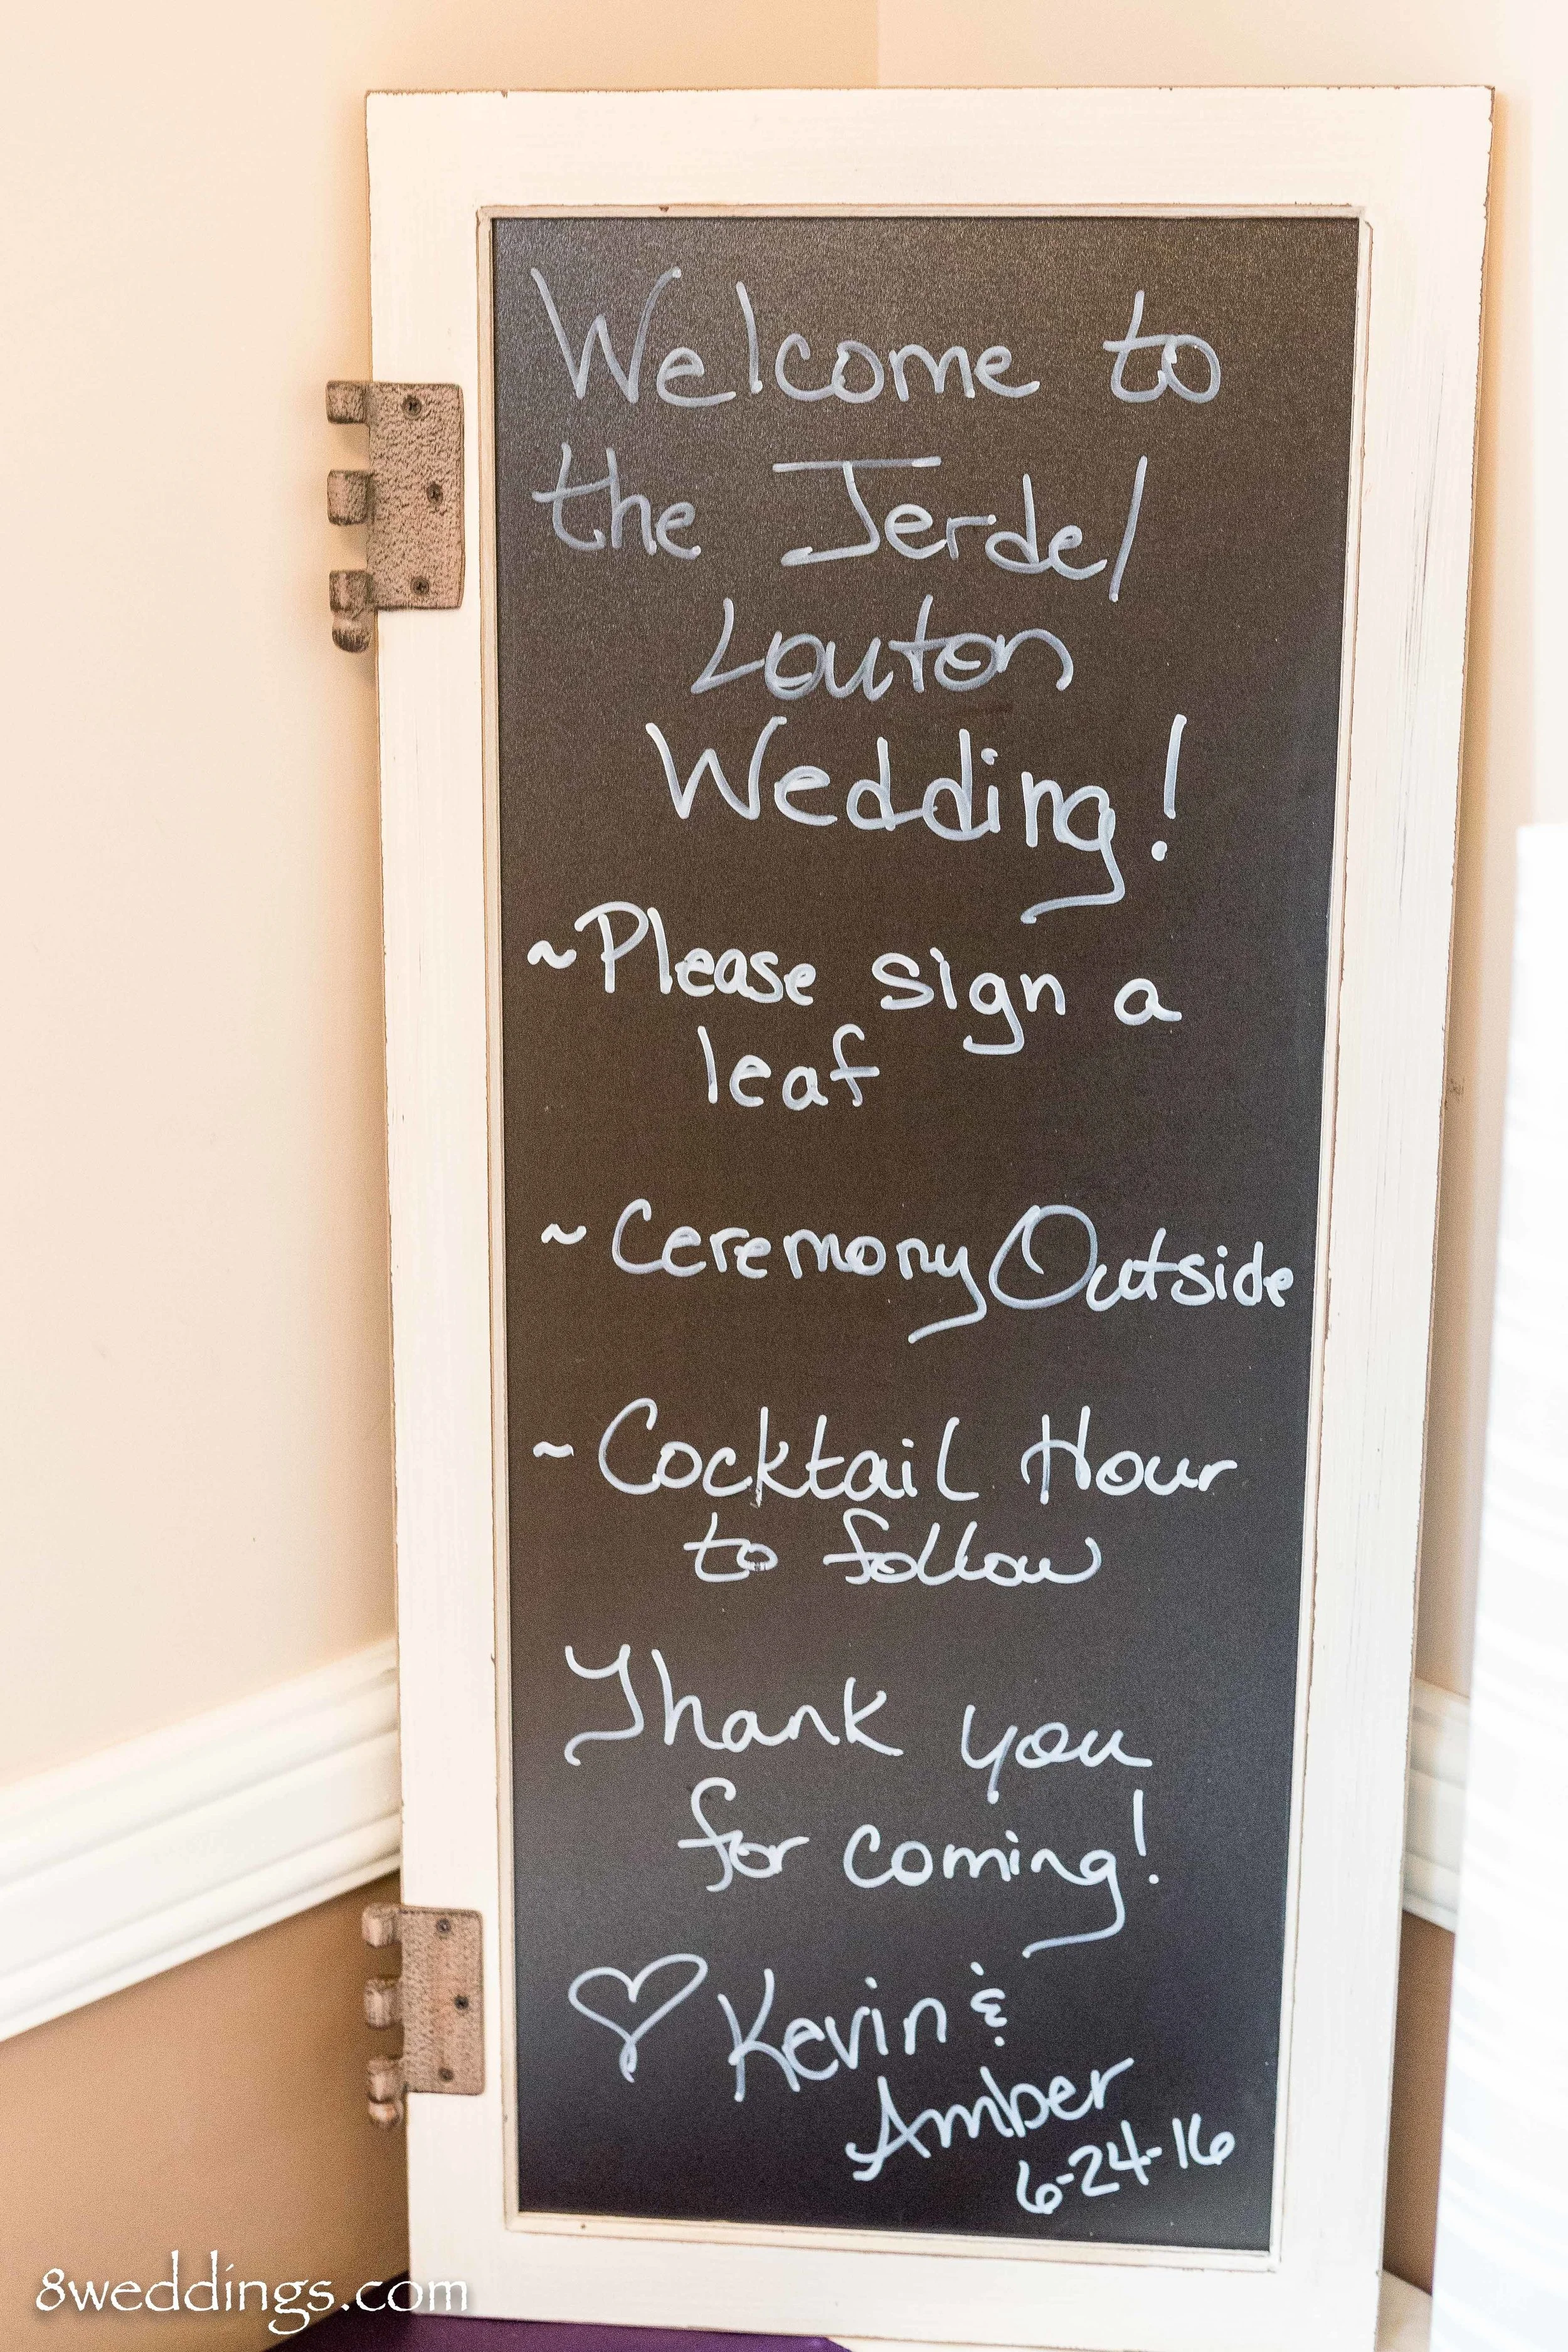 Welcome to
the Jerdel
Louton
Wedding!
~Please sign a
leaf
~Ceremony Outside
~Cocktail Hour
to follow
Thank you
for coming!
♡ Kevin &
Amber
6-24-16
8weddings.com